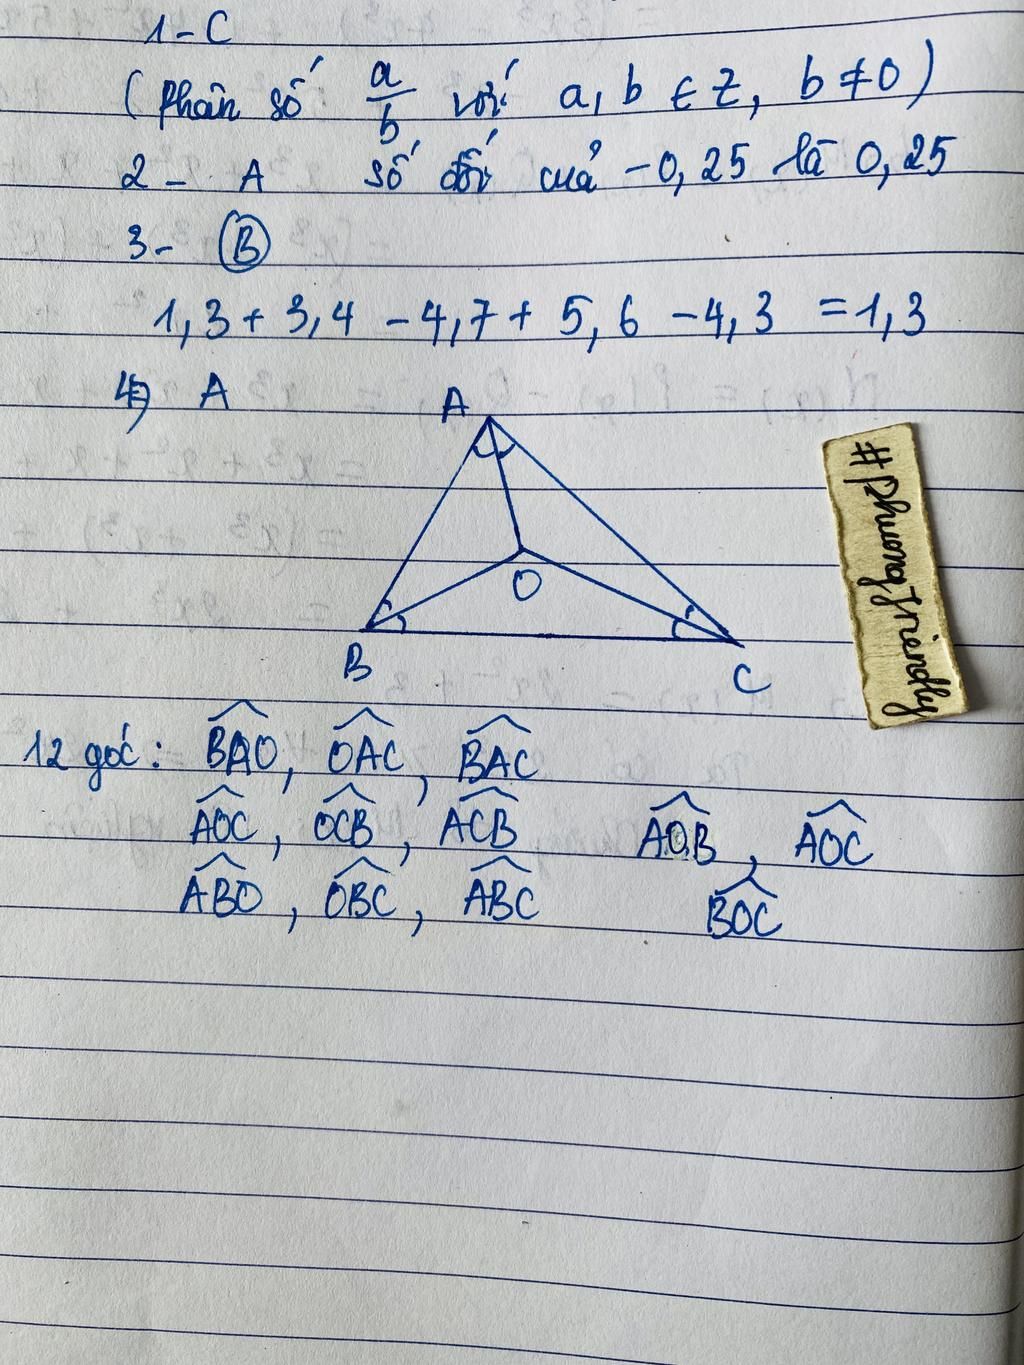 1-C
(Phân số a/b với a, b ∈ Z, b ≠ 0)
2- A số đối của -0,25 là 0,25
3- B
1,3 + 3,4 - 4,7 + 5,6 - 4,3 = 1,3
4) A
A
O
B
C
#Phuong_friendly
12 góc: BAO, OAC, BAC
AOC, OCB, ACB AOB, AOC
ABO, OBC, ABC BOC